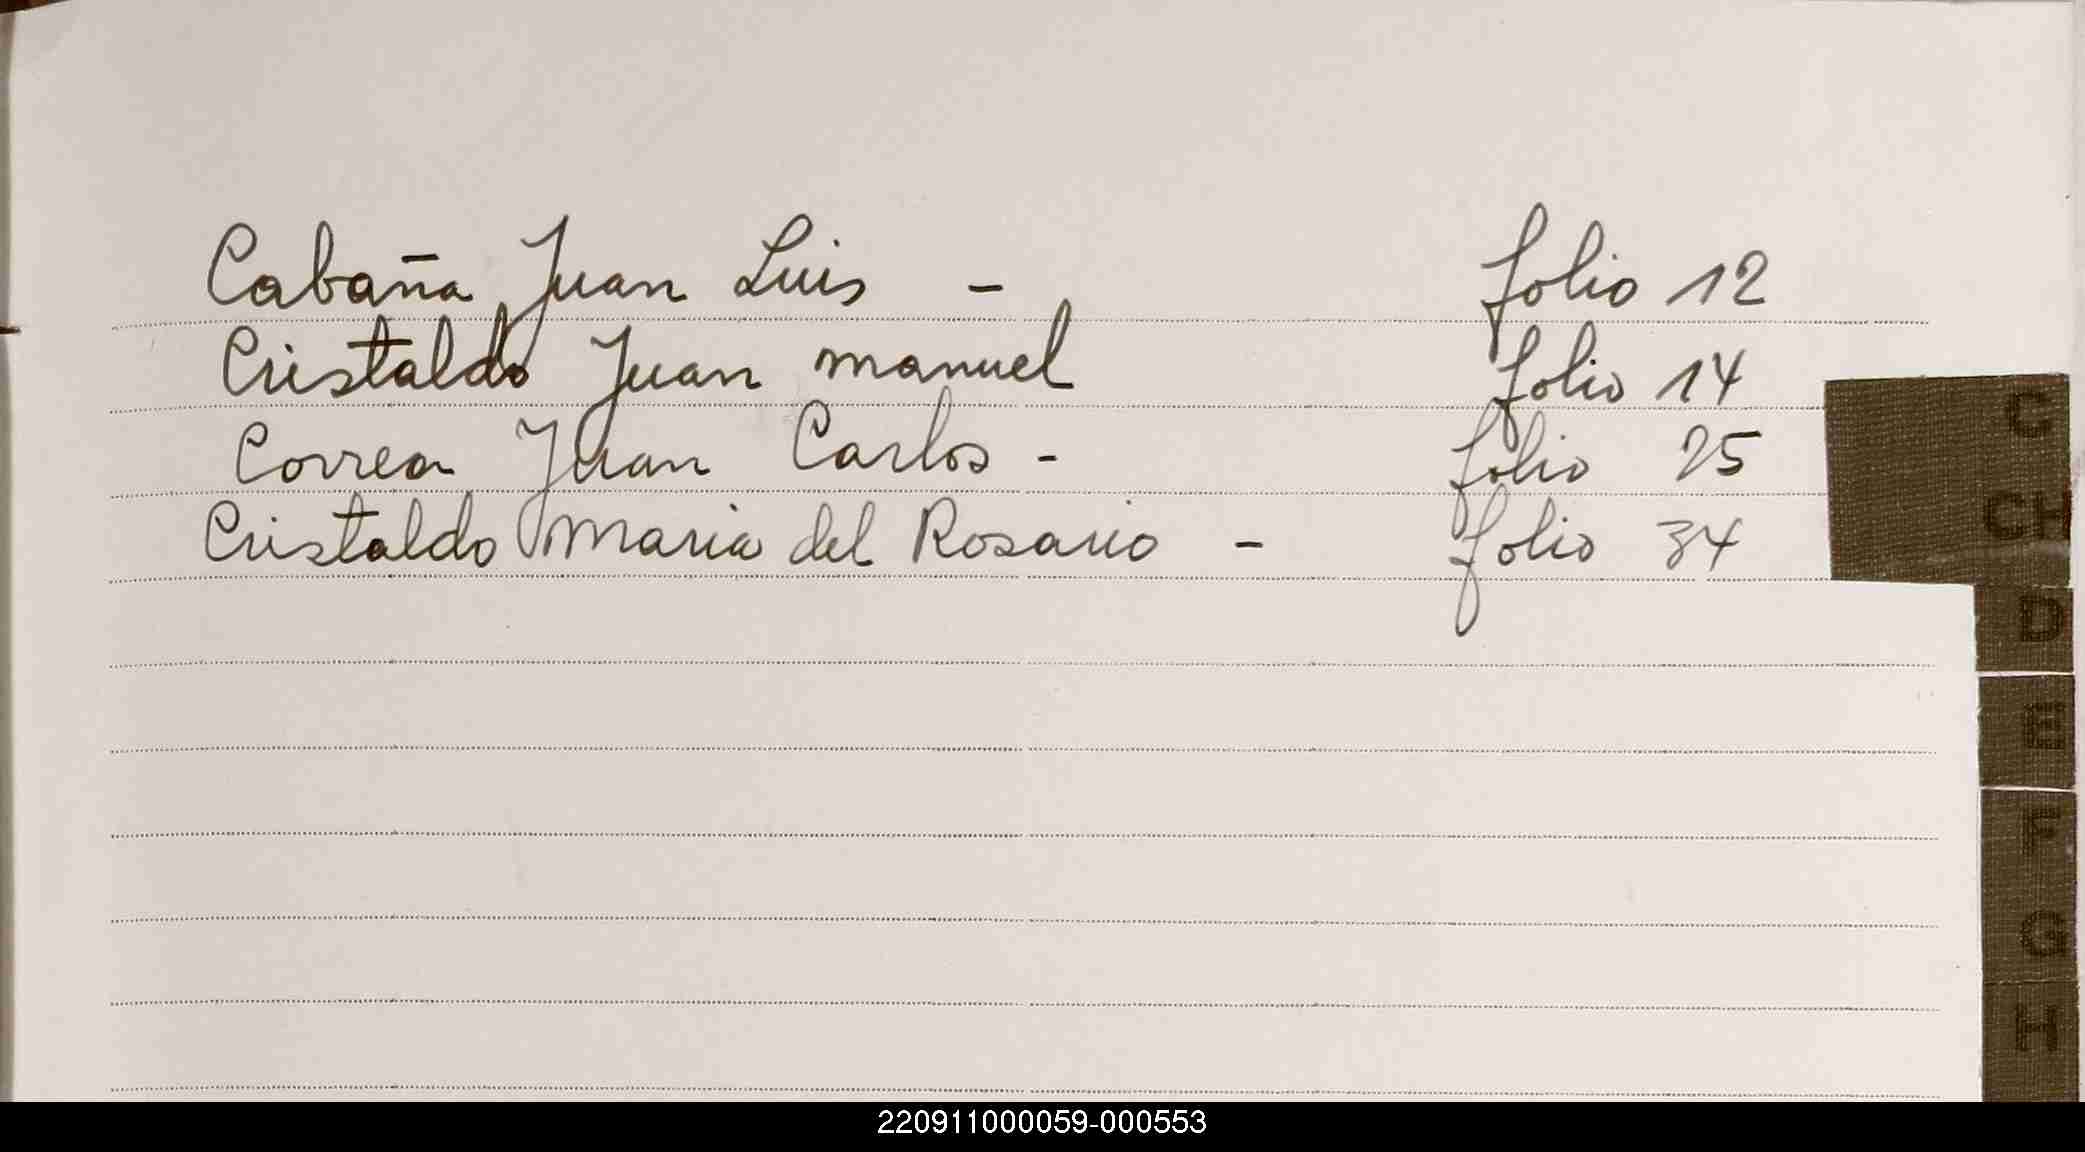 Cabaña Juan Luis - folio 12
Cristaldo Juan manuel folio 14
Correa Juan Carlos - folio 25
Cristaldo Maria del Rosario - folio 34
C
CH
D
E
F
G
H
220911000059-000553